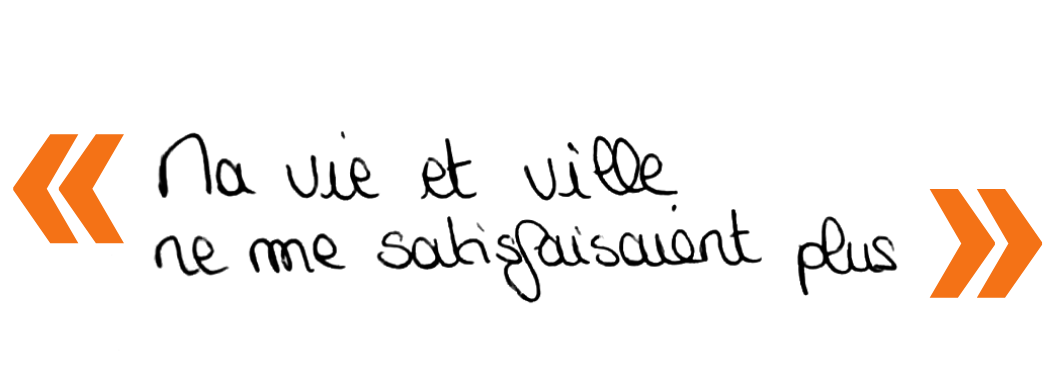 « Ma vie et ville
ne me satisfaisaient plus »